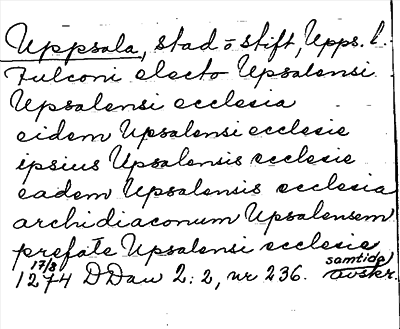 Uppsala, stad o stift, Upps. l.
Fulconi electo Upsalensi
Upsalensi ecclesia
eidem Upsalensi ecclesie
ipsius Upsalensis ecclesie
eadem Upsalensis ecclesia
archidiaconum Upsalensem
prefate Upsalensi ecclesie
17/8 samtida
1274 DDaw 2:2, nr 236. avskr.